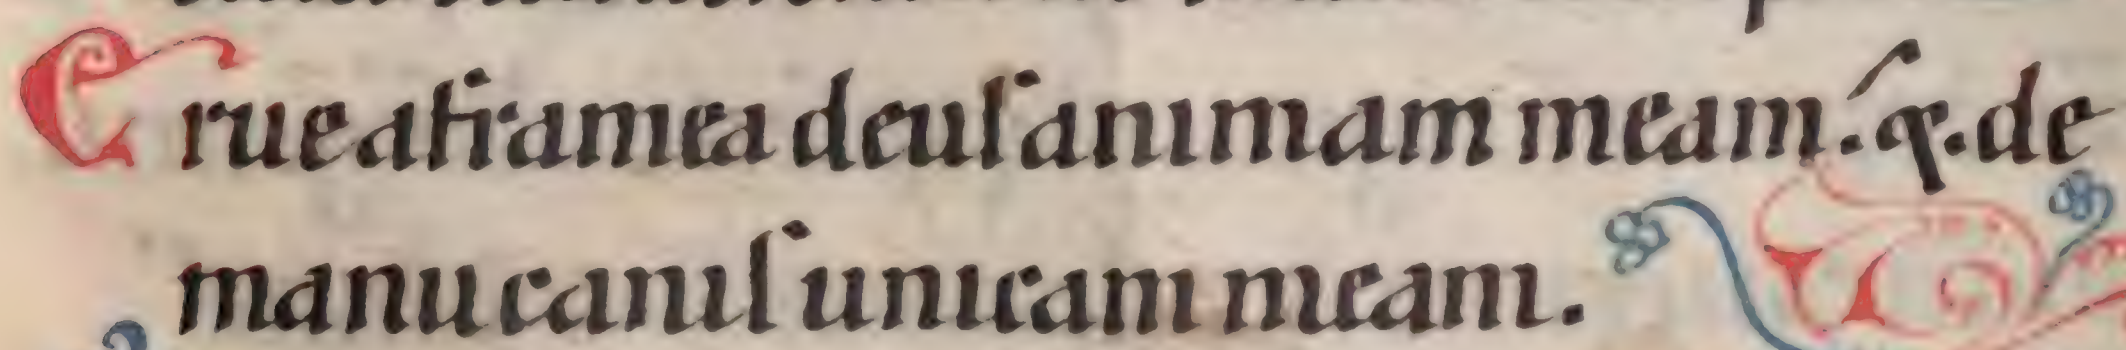 Erue a framea deus animam meam. q. de
manu canis unicam meam.